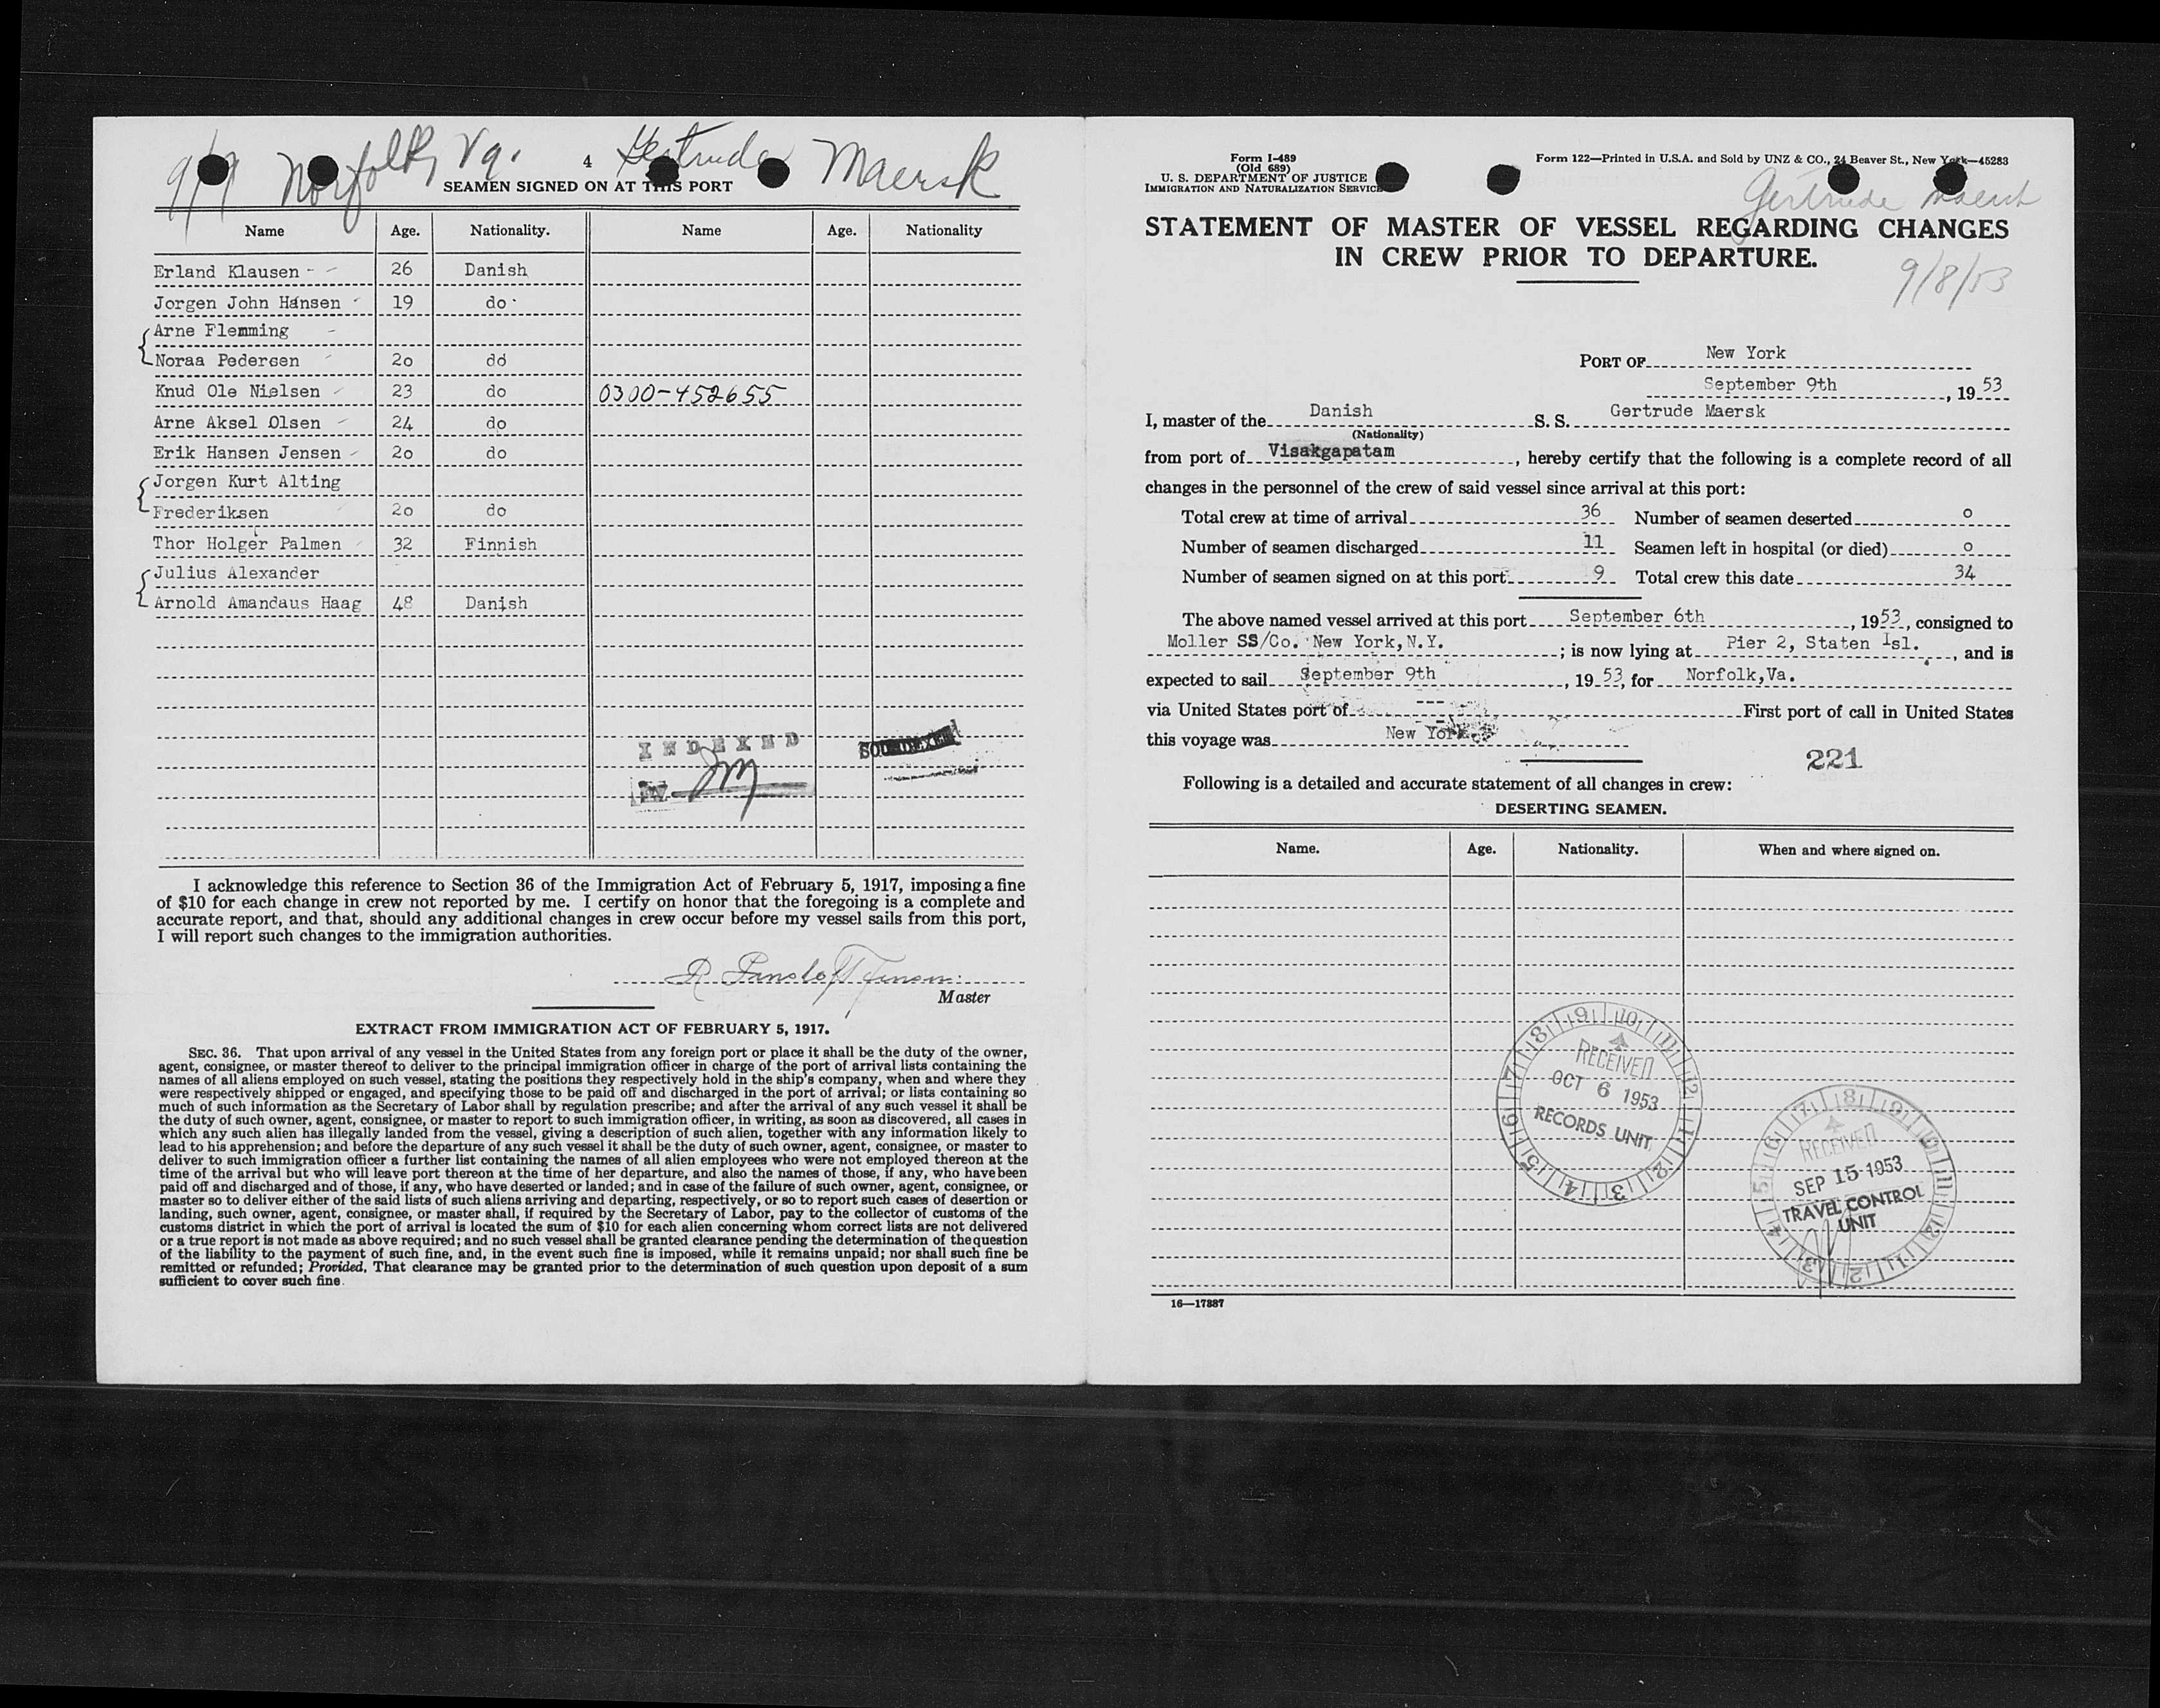 9/9 Norfolk, Va. Gertrude Maersk
4
SEAMEN SIGNED ON AT THIS PORT
Name Age. Nationality. Name Age. Nationality
Erland Klausen 26 Danish
Jorgen John Hansen 19 do
Arne Flemming
Noraa Pedersen 20 do
Knud Ole Nielsen 23 do 0300-452655
Arne Aksel Olsen 24 do
Erik Hansen Jensen 20 do
Jorgen Kurt Alting
Frederiksen 20 do
Thor Holger Palmen 32 Finnish
Julius Alexander
Arnold Amandaus Haag 48 Danish
INDEXED
SOUNDEXED
I acknowledge this reference to Section 36 of the Immigration Act of February 5, 1917, imposing a fine
of $10 for each change in crew not reported by me. I certify on honor that the foregoing is a complete and
accurate report, and that, should any additional changes in crew occur before my vessel sails from this port,
I will report such changes to the immigration authorities.
Master
EXTRACT FROM IMMIGRATION ACT OF FEBRUARY 5, 1917.
SEC. 36. That upon arrival of any vessel in the United States from any foreign port or place it shall be the duty of the owner,
agent, consignee, or master thereof to deliver to the principal immigration officer in charge of the port of arrival lists containing the
names of all aliens employed on such vessel, stating the positions they respectively hold in the ship's company, when and where they
were respectively shipped or engaged, and specifying those to be paid off and discharged in the port of arrival; or lists containing so
much of such information as the Secretary of Labor shall by regulation prescribe; and after the arrival of any such vessel it shall be
the duty of such owner, agent, consignee, or master to report to such immigration officer, in writing, as soon as discovered, all cases in
which any such alien has illegally landed from the vessel, giving a description of such alien, together with any information likely to
lead to his apprehension; and before the departure of any such vessel it shall be the duty of such owner, agent, consignee, or master to
deliver to such immigration officer a further list containing the names of all alien employees who were not employed thereon at the
time of the arrival but who will leave port thereon at the time of her departure, and also the names of those, if any, who have been
paid off and discharged and of those, if any, who have deserted or landed; and in case of the failure of such owner, agent, consignee, or
master so to deliver either of the said lists of such aliens arriving and departing, respectively, or so to report such cases of desertion or
landing, such owner, agent, consignee, or master shall, if required by the Secretary of Labor, pay to the collector of customs of the
customs district in which the port of arrival is located the sum of $10 for each alien concerning whom correct lists are not delivered
or a true report is not made as above required; and no such vessel shall be granted clearance pending the determination of the question
of the liability to the payment of such fine, and, in the event such fine is imposed, while it remains unpaid; nor shall such fine be
remitted or refunded; Provided, That clearance may be granted prior to the determination of such question upon deposit of a sum
sufficient to cover such fine.
Form I-489
(Old 689)
U. S. DEPARTMENT OF JUSTICE
IMMIGRATION AND NATURALIZATION SERVICE
Form 122—Printed in U.S.A. and Sold by UNZ & CO., 24 Beaver St., New York—45283
Gertrude Maersk
STATEMENT OF MASTER OF VESSEL REGARDING CHANGES
IN CREW PRIOR TO DEPARTURE.
9/8/53
PORT OF New York
September 9th, 1953
I, master of the Danish S. S. Gertrude Maersk
(Nationality)
from port of Visakgapatam, hereby certify that the following is a complete record of all
changes in the personnel of the crew of said vessel since arrival at this port:
Total crew at time of arrival 36 Number of seamen deserted 0
Number of seamen discharged 11 Seamen left in hospital (or died) 0
Number of seamen signed on at this port 9 Total crew this date 34
The above named vessel arrived at this port September 6th, 1953, consigned to
Moller SS/Co. New York, N.Y.; is now lying at Pier 2, Staten Isl., and is
expected to sail September 9th, 1953, for Norfolk, Va.
via United States port of --- First port of call in United States
this voyage was New York
221
Following is a detailed and accurate statement of all changes in crew:
DESERTING SEAMEN.
Name. Age. Nationality. When and where signed on.
RECEIVED
OCT 6 1953
RECORDS UNIT
RECEIVED
SEP 15 1953
TRAVEL CONTROL
UNIT
16—17887